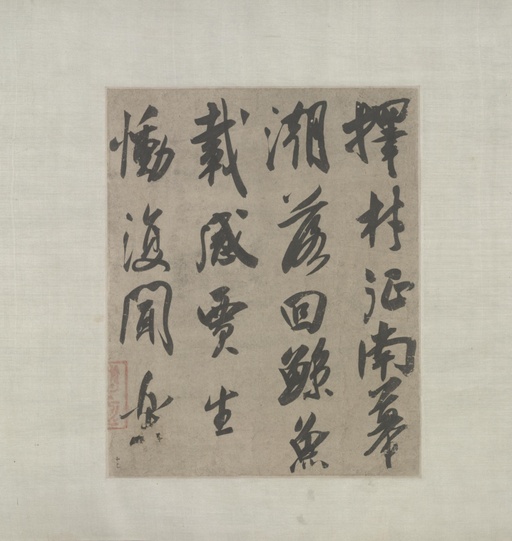 擇材征南幕
潮落回鯨魚
載感賈生
慟復聞